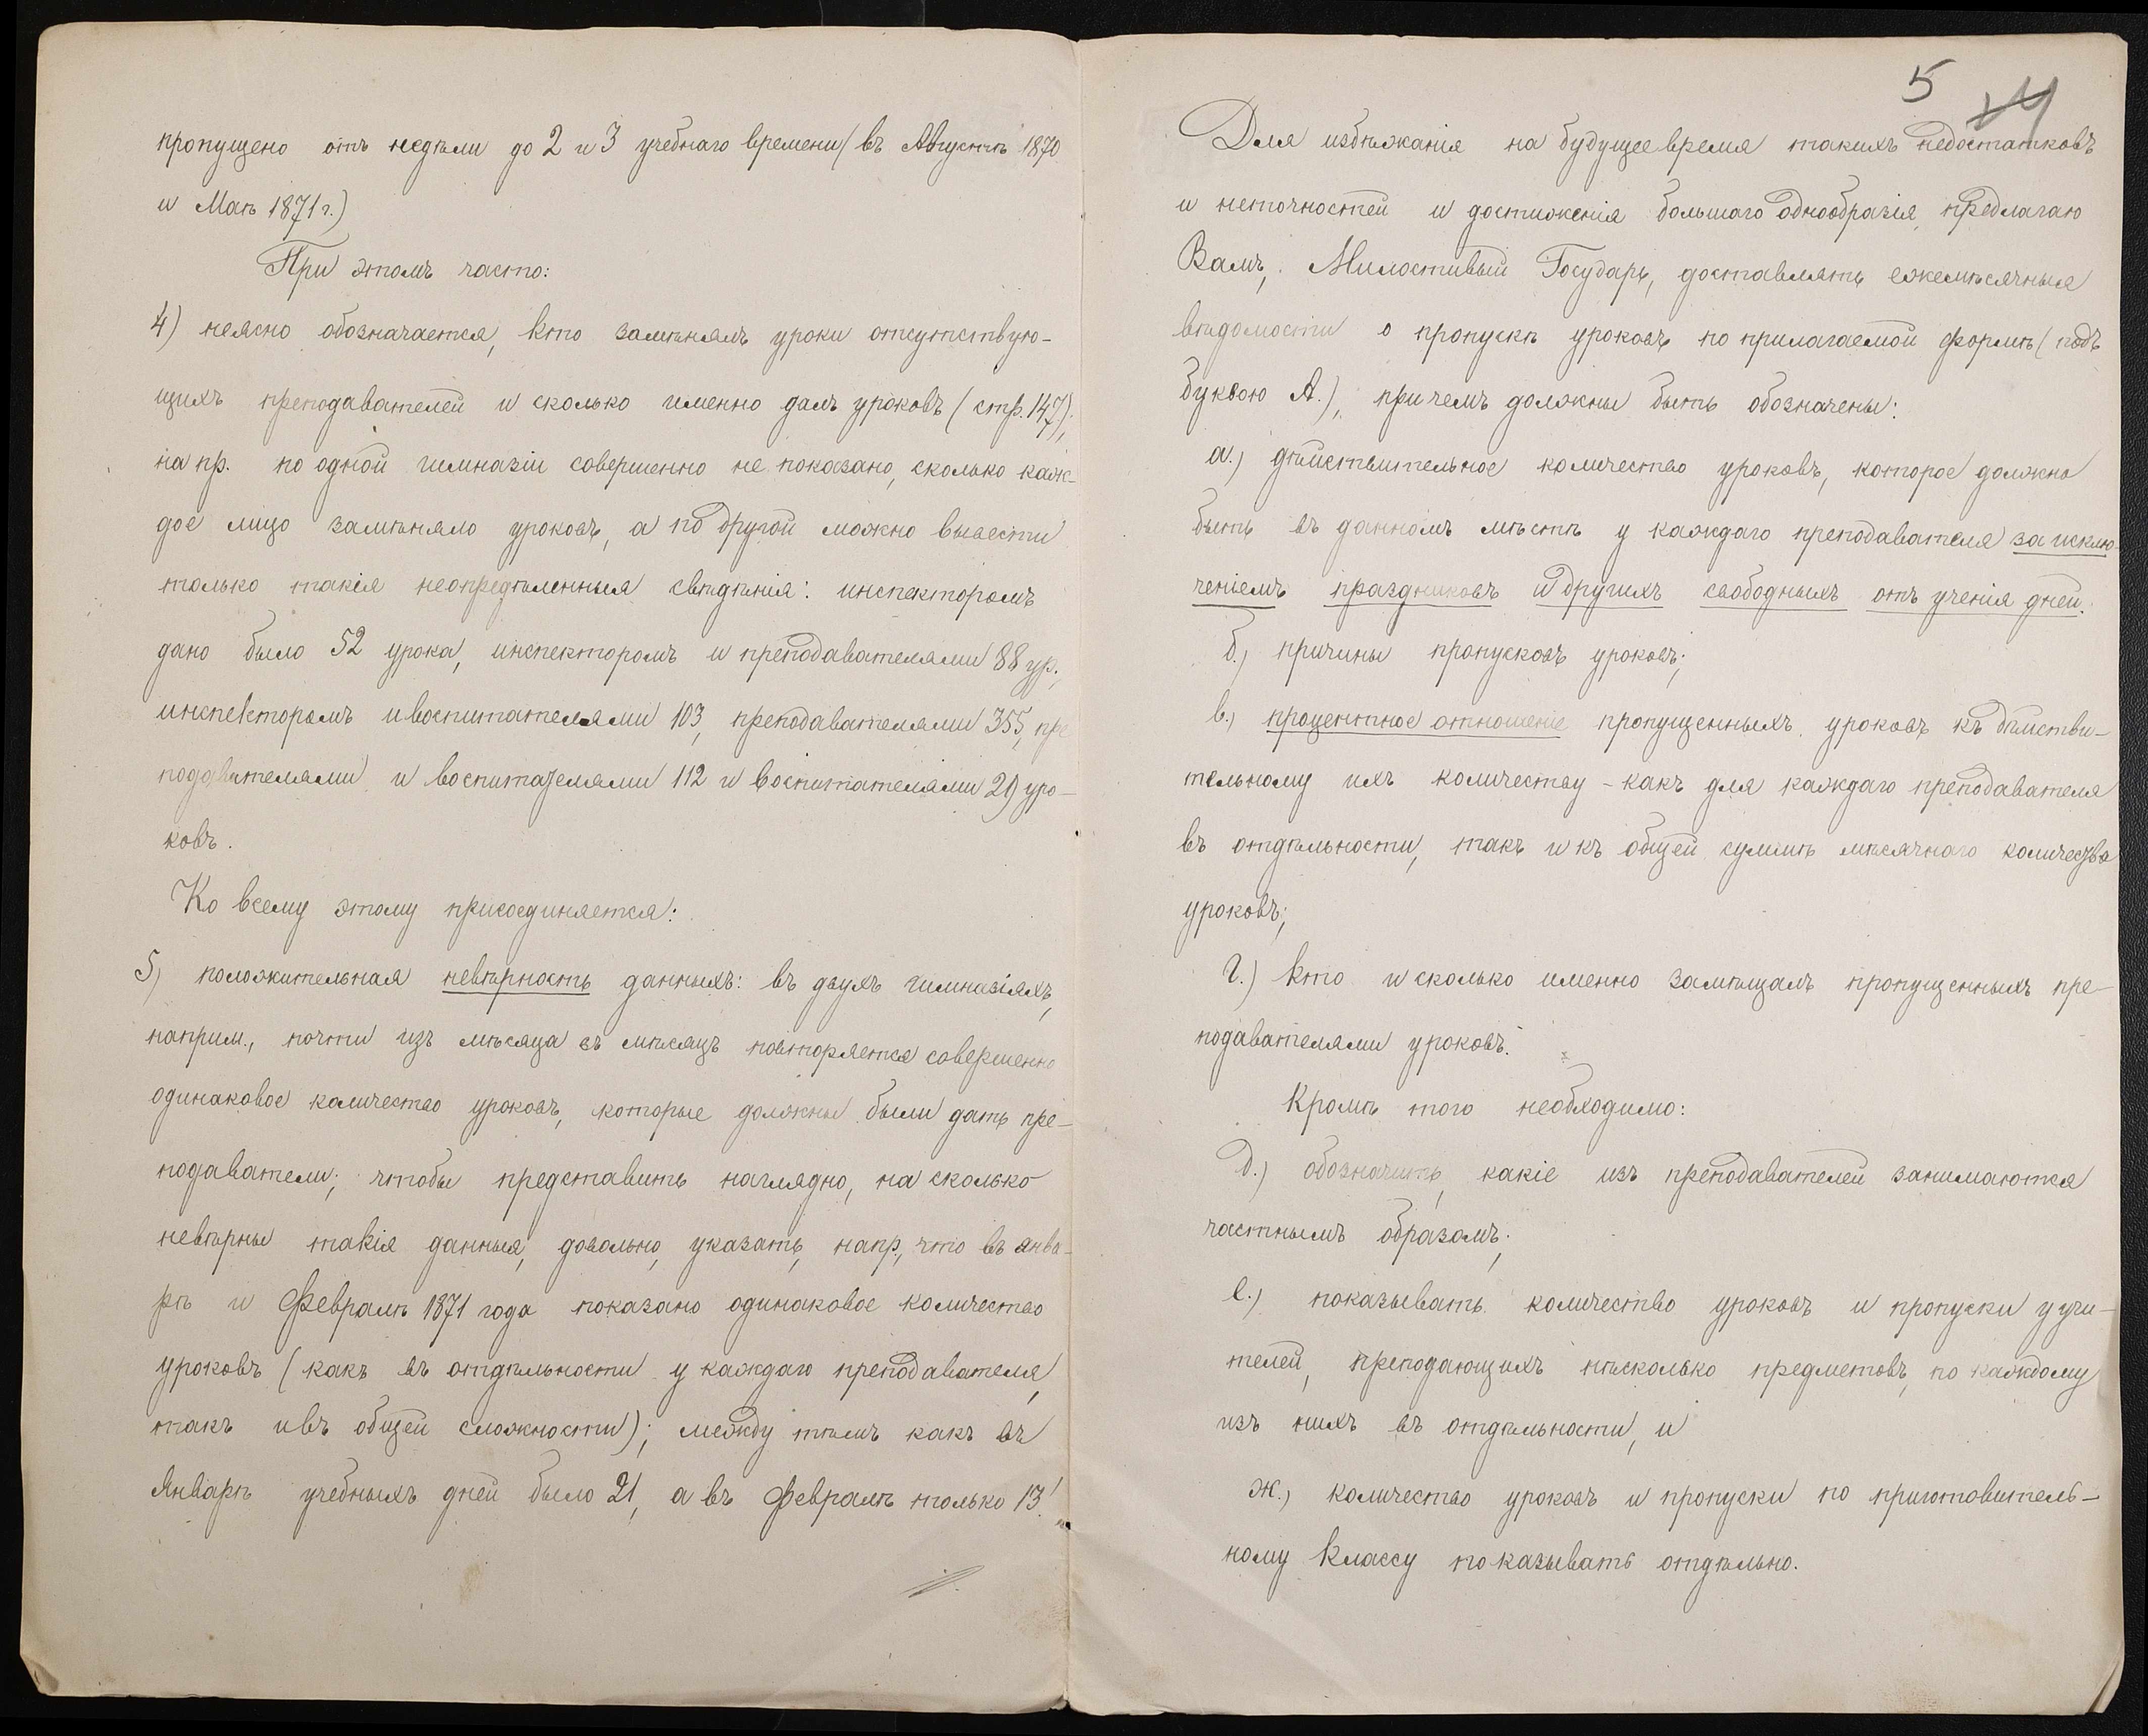 пропущено отъ недѣли до 2 и 3 учебнаго времени (въ Августѣ 1870
и Маѣ 1871 г.)
При этомъ часто:
4) неясно обозначается, кто замѣнялъ уроки отсутствую-
щихъ преподавателей и сколько именно далъ уроковъ (стр. 147);
на пр. по одной гимназіи совершенно не показано, сколько каж-
дое лицо замѣняло уроковъ, а по другой можно вывести
только такія неопредѣленныя свѣдѣнія: инспекторомъ
дано было 52 урока, инспекторомъ и преподавателями 88 ур.,
инспекторомъ и воспитателями 103, преподавателями 355, пре
подавателями и воспитателями 112 и воспитателями 29 уро-
ковъ.
Ко всему этому присоединяется:
5) положительная невѣрность данныхъ: въ двухъ гимназіяхъ,
наприм., почти изъ мѣсяца въ мѣсяцъ повторяется совершенно
одинаковое количество уроковъ, которые должны были дать пре-
подаватели; чтобы представить наглядно, на сколько
невѣрны такія данныя, довольно указать, напр., что въ янва-
рѣ и Февралѣ 1871 года показано одинаковое количество
уроковъ (какъ въ отдѣльности у каждаго преподавателя,
такъ и въ общей сложности); между тѣмъ какъ въ
Январѣ учебныхъ дней было 21, а въ Февралѣ только 13!
5 14
Для избѣжанія на будущее время такихъ недостатковъ
и неточностей и достиженія большаго однообразія, предлагаю
Вамъ, Милостивый Государь, доставлять ежемѣсячныя
вѣдомости о пропускѣ уроковъ по прилагаемой формѣ (подъ
буквою А.), при чемъ должны быть обозначены:
а.) дѣйствительное количество уроковъ, которое должно
быть въ данномъ мѣстѣ у каждаго преподавателя за исклю-
ченіемъ праздниковъ и другихъ свободныхъ отъ ученія дней.
б.) причины пропусковъ уроковъ;
в.) процентное отношеніе пропущенныхъ уроковъ къ дѣйстви-
тельному ихъ количеству - какъ для каждаго преподавателя
въ отдѣльности, такъ и къ общей суммѣ мѣсячнаго количества
уроковъ;
г.) кто и сколько именно замѣщалъ пропущенныхъ пре-
подавателями уроковъ.
Кромѣ того необходимо:
д.) обозначить, какіе изъ преподавателей занимаются
частнымъ образомъ;
е.) показывать количество уроковъ и пропуски у учи-
телей, преподающихъ нѣсколько предметовъ, по каждому
изъ нихъ въ отдѣльности, и
ж.) количество уроковъ и пропуски по приготовитель-
ному классу показывать отдѣльно.